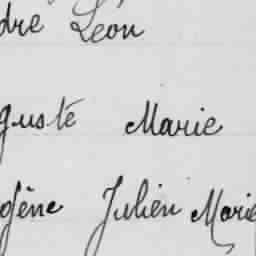 dre Léon
guste Marie
gène Julien Marie